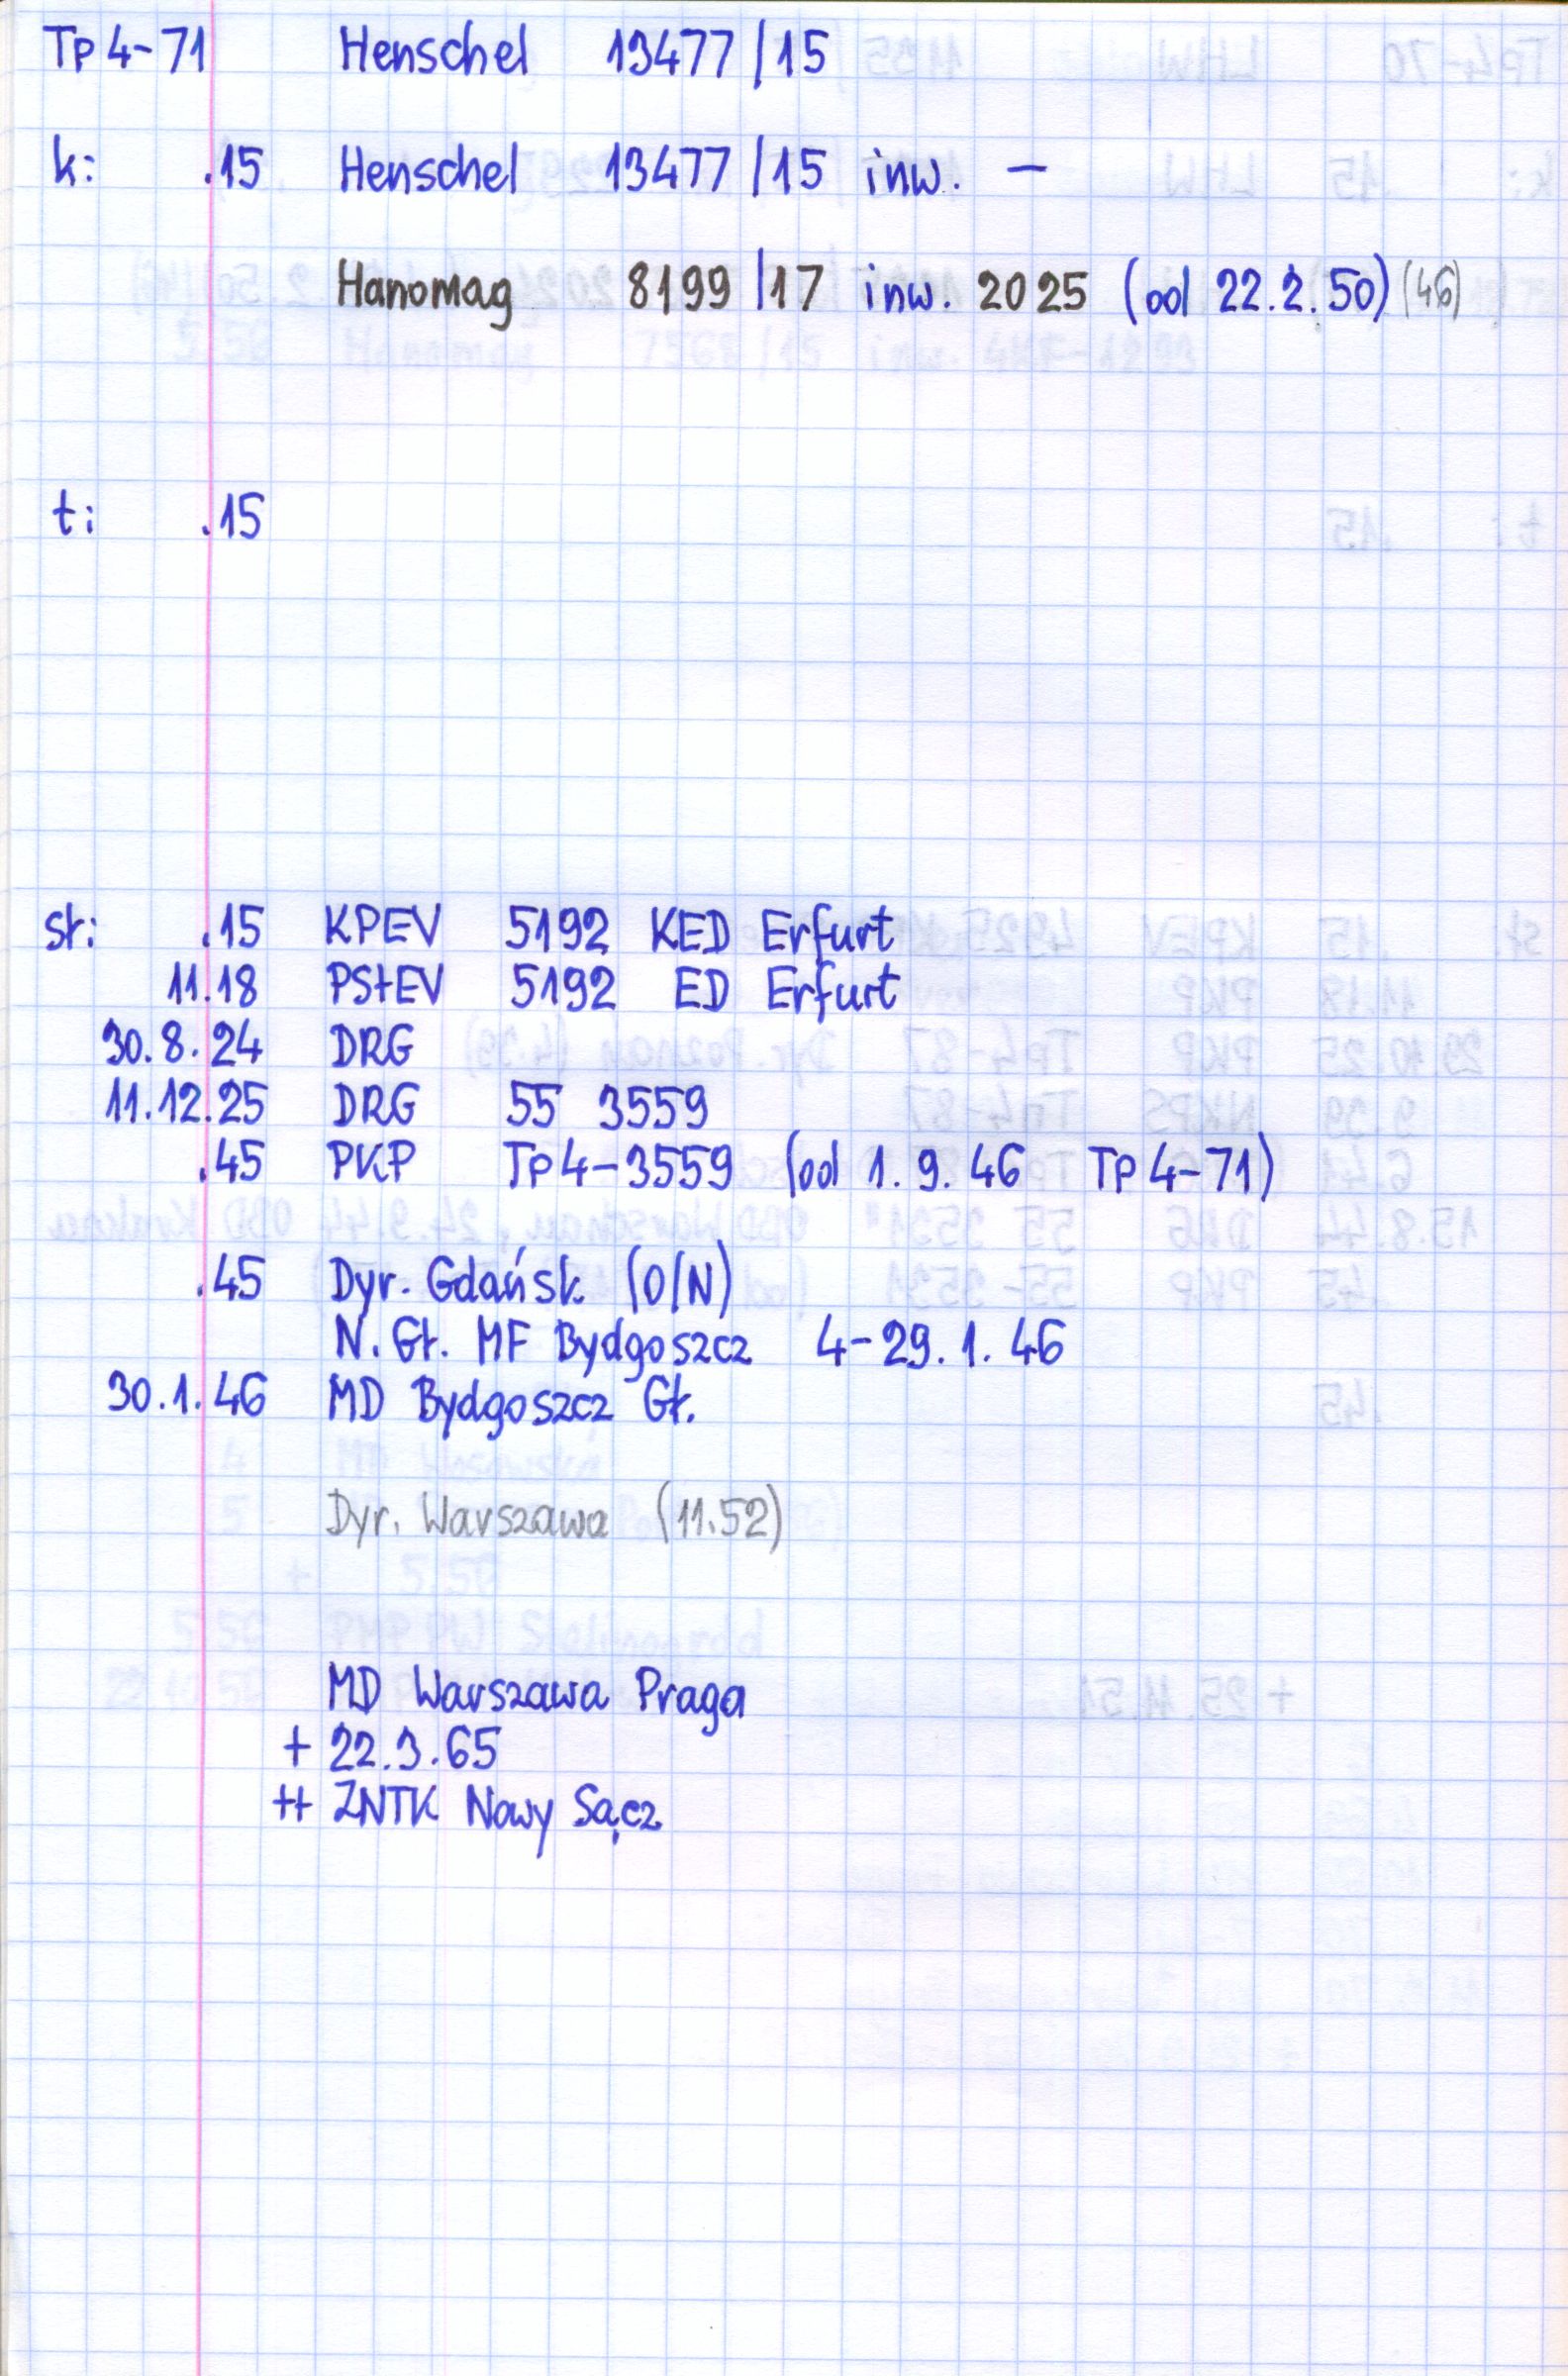 Tp4-71 Henschel 13477/15
k: .15 Henschel 13477/15 inw. —
Hanomag 8199/17 inw. 2025 (od 22.2.50) (46)
t: .15
st: .15 KPEV 5192 KED Erfurt
11.18 PStEV 5192 ED Erfurt
30.8.24 DRG
11.12.25 DRG 55 3559
.45 PKP Tp4-3559 (od 1.9.46 Tp4-71)
.45 Dyr. Gdańsk (O/N)
N. Gł. MF Bydgoszcz 4-29.1.46
30.1.46 MD Bydgoszcz Gł.
Dyr. Warszawa (11.52)
MD Warszawa Praga
+ 22.3.65
++ ZNTK Nowy Sącz